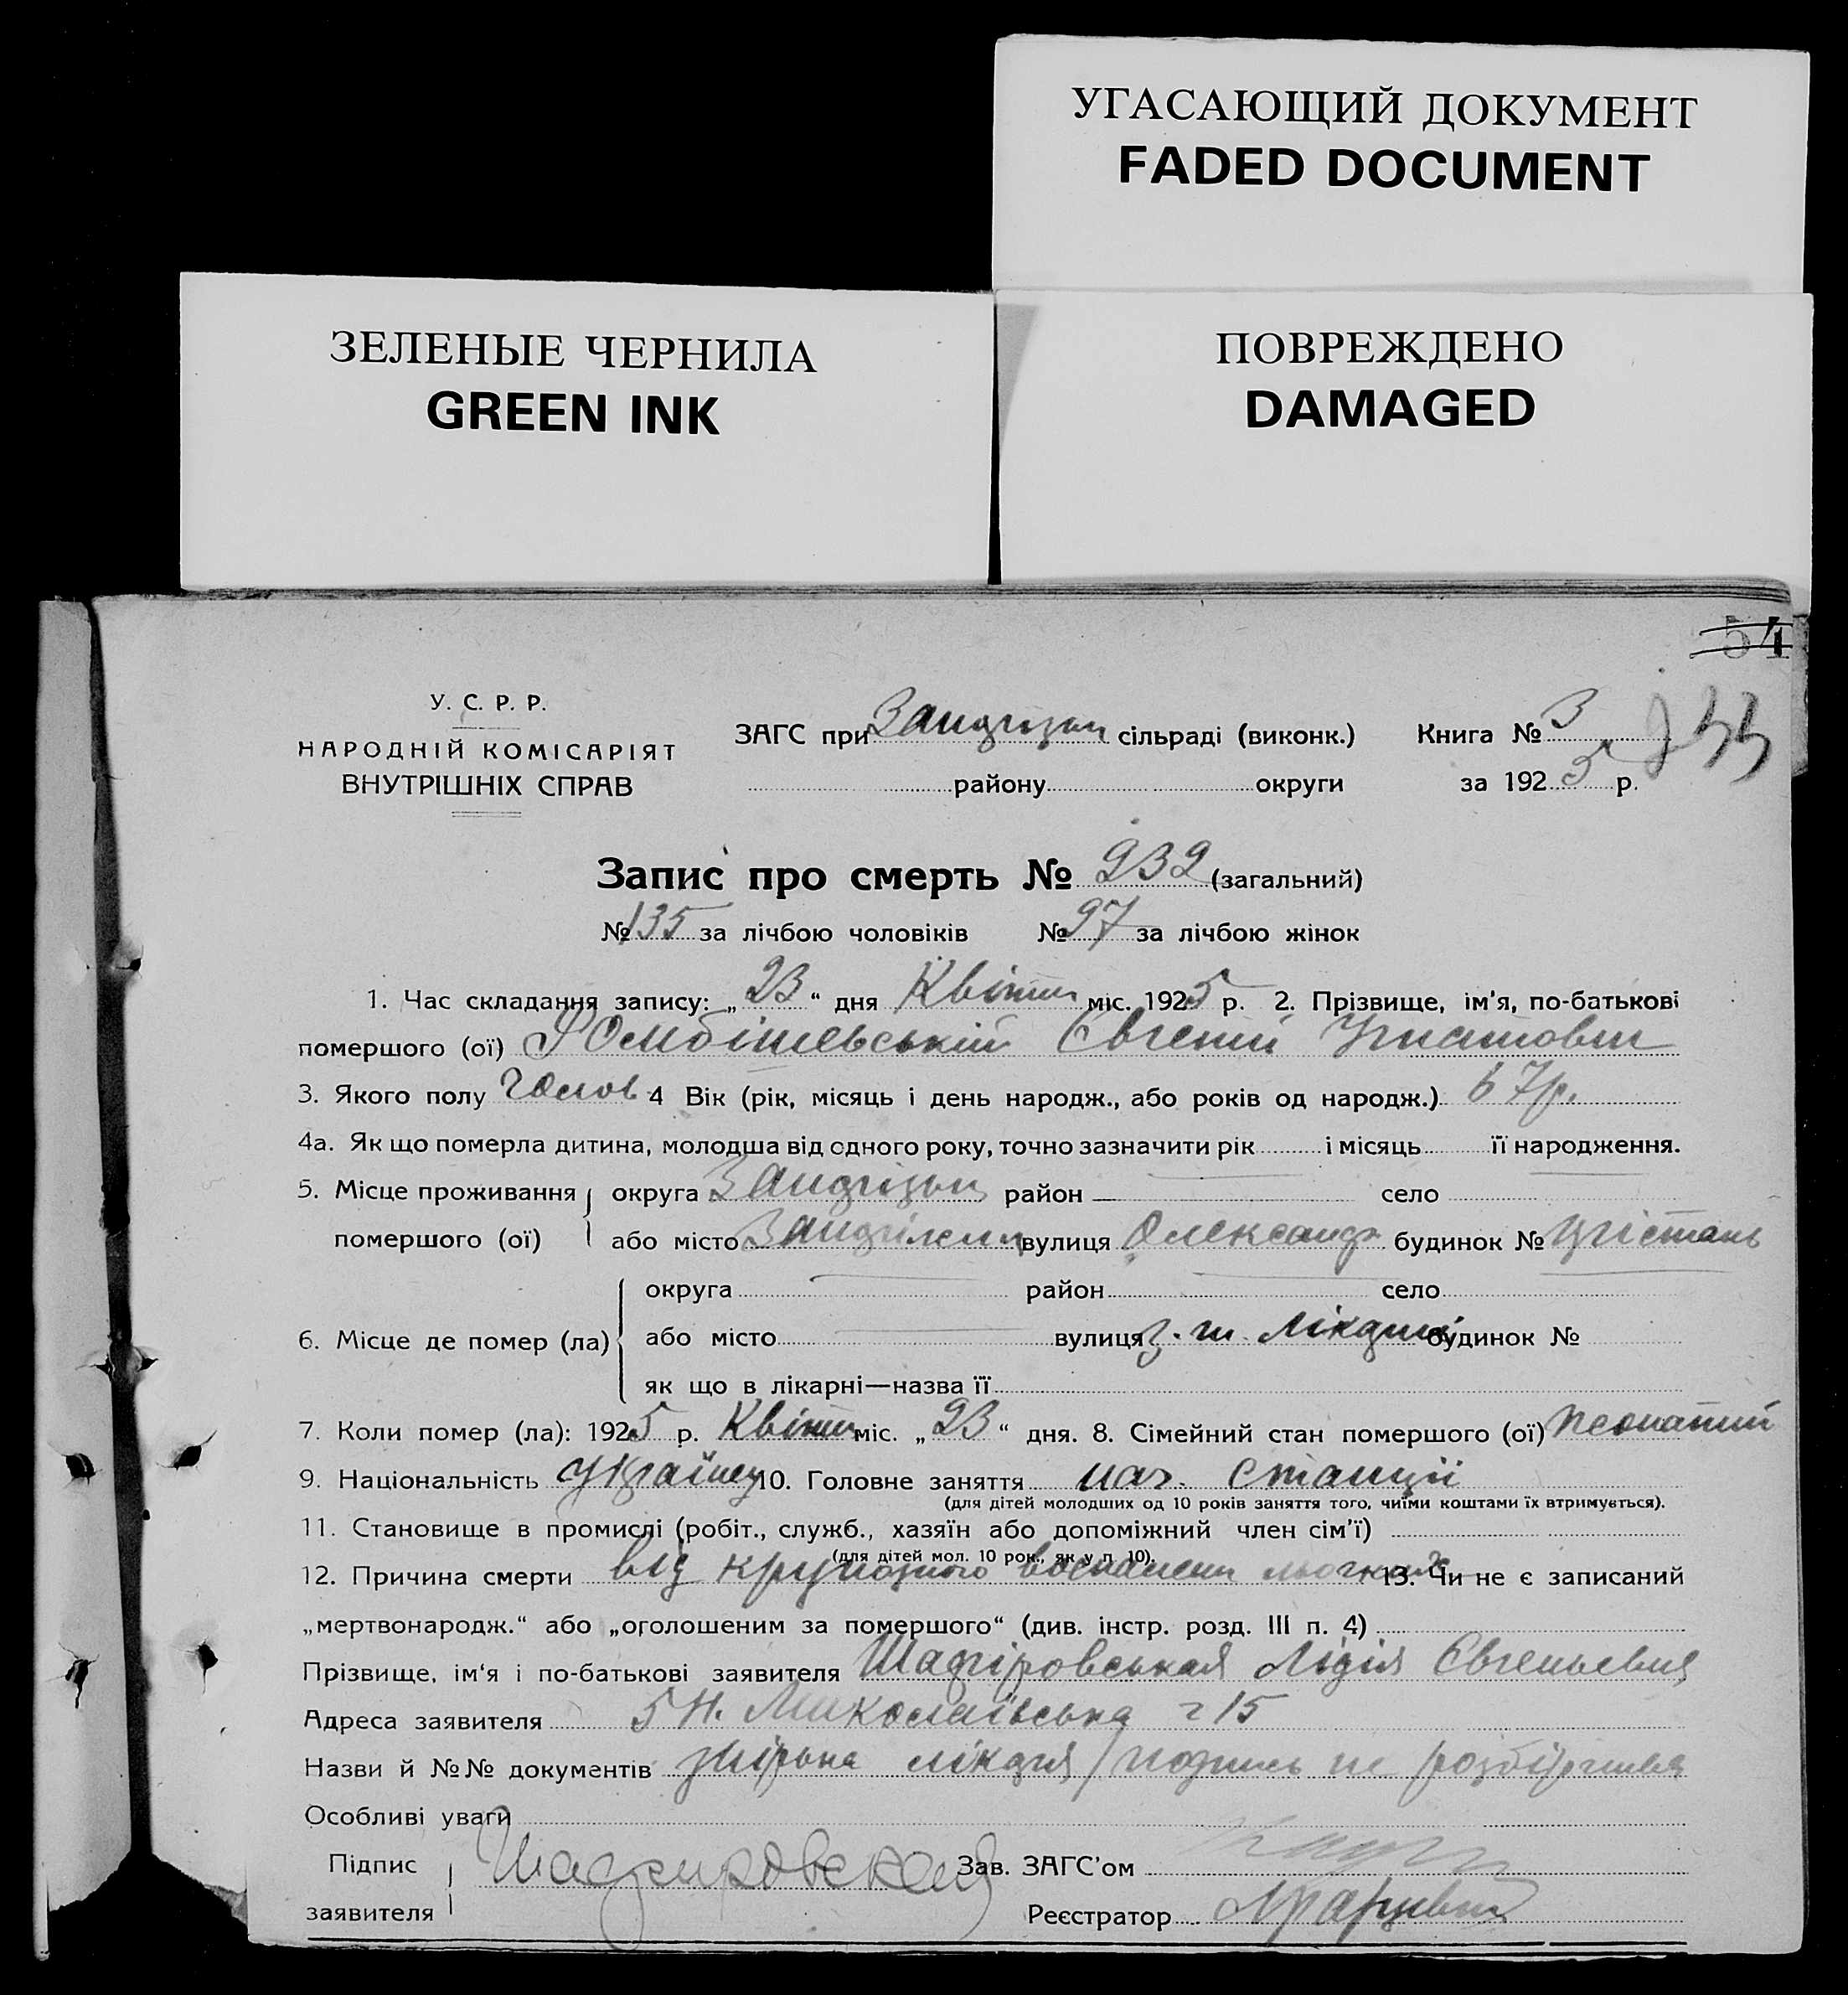 УГАСАЮЩИЙ ДОКУМЕНТ
FADED DOCUMENT
ЗЕЛЕНЫЕ ЧЕРНИЛА
GREEN INK
ПОВРЕЖДЕНО
DAMAGED
54
У. С. Р. Р.
НАРОДНІЙ КОМІСАРІЯТ
ВНУТРІШНІХ СПРАВ
ЗАГС при сільраді (виконк.) Книга № 3
району округи за 1925 р.
Запис про смерть № 232 (загальний)
№ 135 за лічбою чоловіків № 97 за лічбою жінок
1. Час складання запису: „23“ дня Квітн міс. 1925 р. 2. Прізвище, ім'я, по-батькові
помершого (ої) Євгеній
3. Якого полу Чолов 4 Вік (рік, місяць і день народж., або років од народж.) 67р.
4а. Як що померла дитина, молодша від одного року, точно зазначити рік і місяць її народження.
5. Місце проживання округа район село
помершого (ої) або місто вулиця Олександр будинок №
округа район село
6. Місце де помер (ла) або місто вулиця будинок №
як що в лікарні—назва її
7. Коли помер (ла): 1925 р. Квітн міс. „23“ дня. 8. Сімейний стан помершого (ої)
9. Національність Українец 10. Головне заняття нач. станції
(для дітей молодших од 10 років заняття того, чиїми коштами їх втримується).
11. Становище в промислі (робіт., служб., хазяїн або допоміжний член сім'ї)
(для дітей мол. 10 рок., як у п. 10).
12. Причина смерти від крупозного воспаления льогких 13. Чи не є записаний
„мертвонародж.“ або „оголошеним за помершого“ (див. інстр. розд. III п. 4)
Прізвище, ім'я і по-батькові заявителя Лідія Євгеньевна
Адреса заявителя 5 Н. Миколаївська 15
Назви й №№ документів подпись не розбірчива
Особливі уваги
Підпис
заявителя
Зав. ЗАГС'ом
Реєстратор